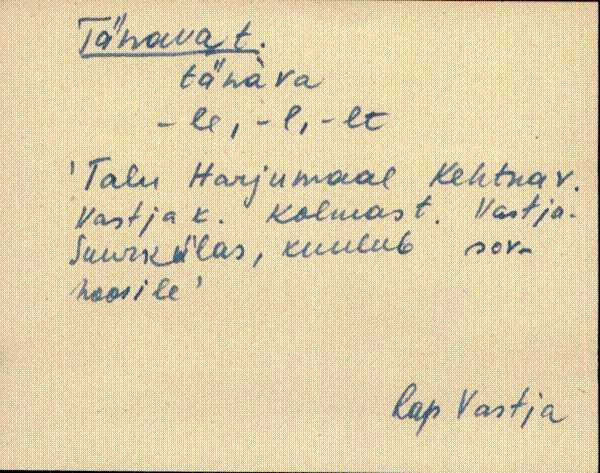 Tänava t.
tänàva
-le, -l, -lt
'Talu Harjumaal Kehtna v.
Vastja k. Kolmas t. Vastja-
Suurkülas, kuulub sov-
hoosile'
Rap Vastja